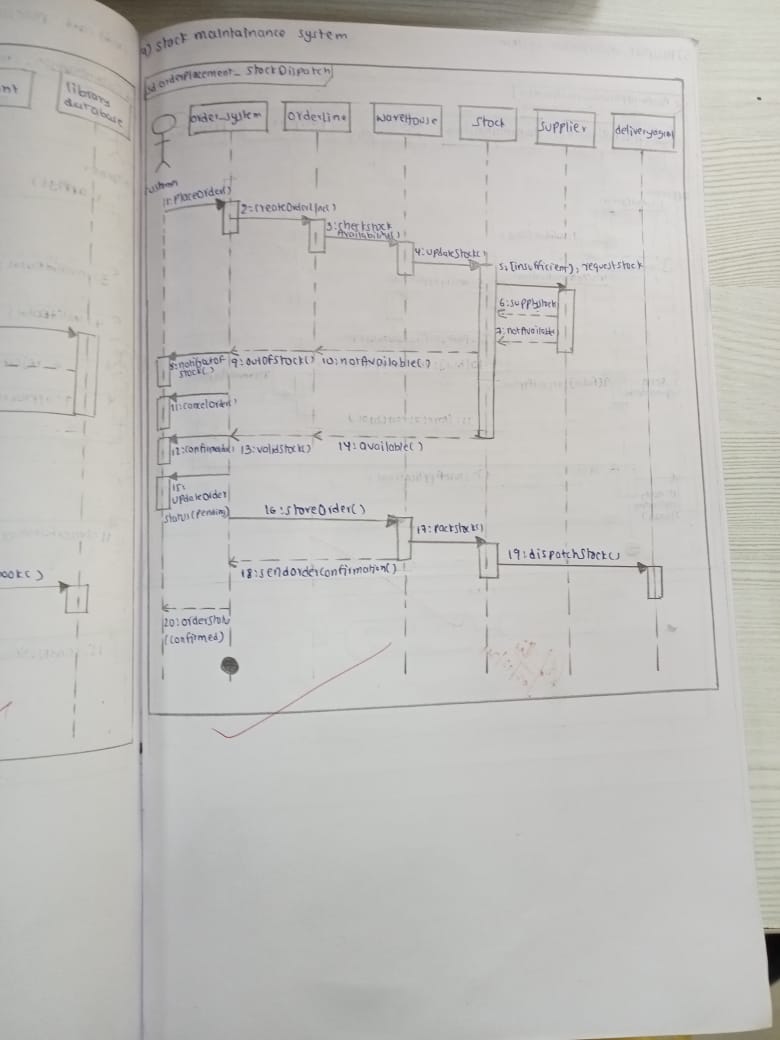 a) stock maintainance system
sd orderplacement_ stockDispatch
nt
library
database
order_system
orderline
wareHouse
stock
supplier
1: PlaceOrder()
2:createOrderline()
3: checkstock
Availability()
4: updateStock()
5: [insufficient]; requeststock
6: supplystock
7: notAvailable
stock()
9: outofstock()
10: notAvailable()
11: cancelorder()
13: validstock()
14: available()
15:
updateOrder
status(pending)
16: storeOrder()
17: packstock()
18: sendorderconfirmation()
19: dispatchstock()
20: orderstatu
(confirmed)
ook()